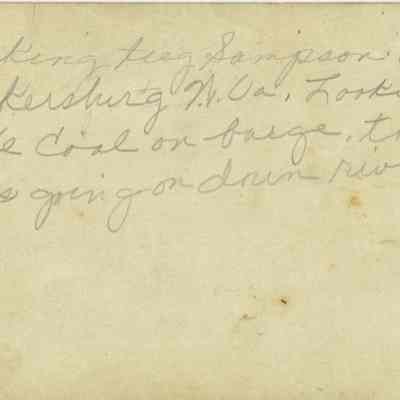 king tieg Sampson
kersburg W. Va. Look
e Coal on barge, t
s going on down riv